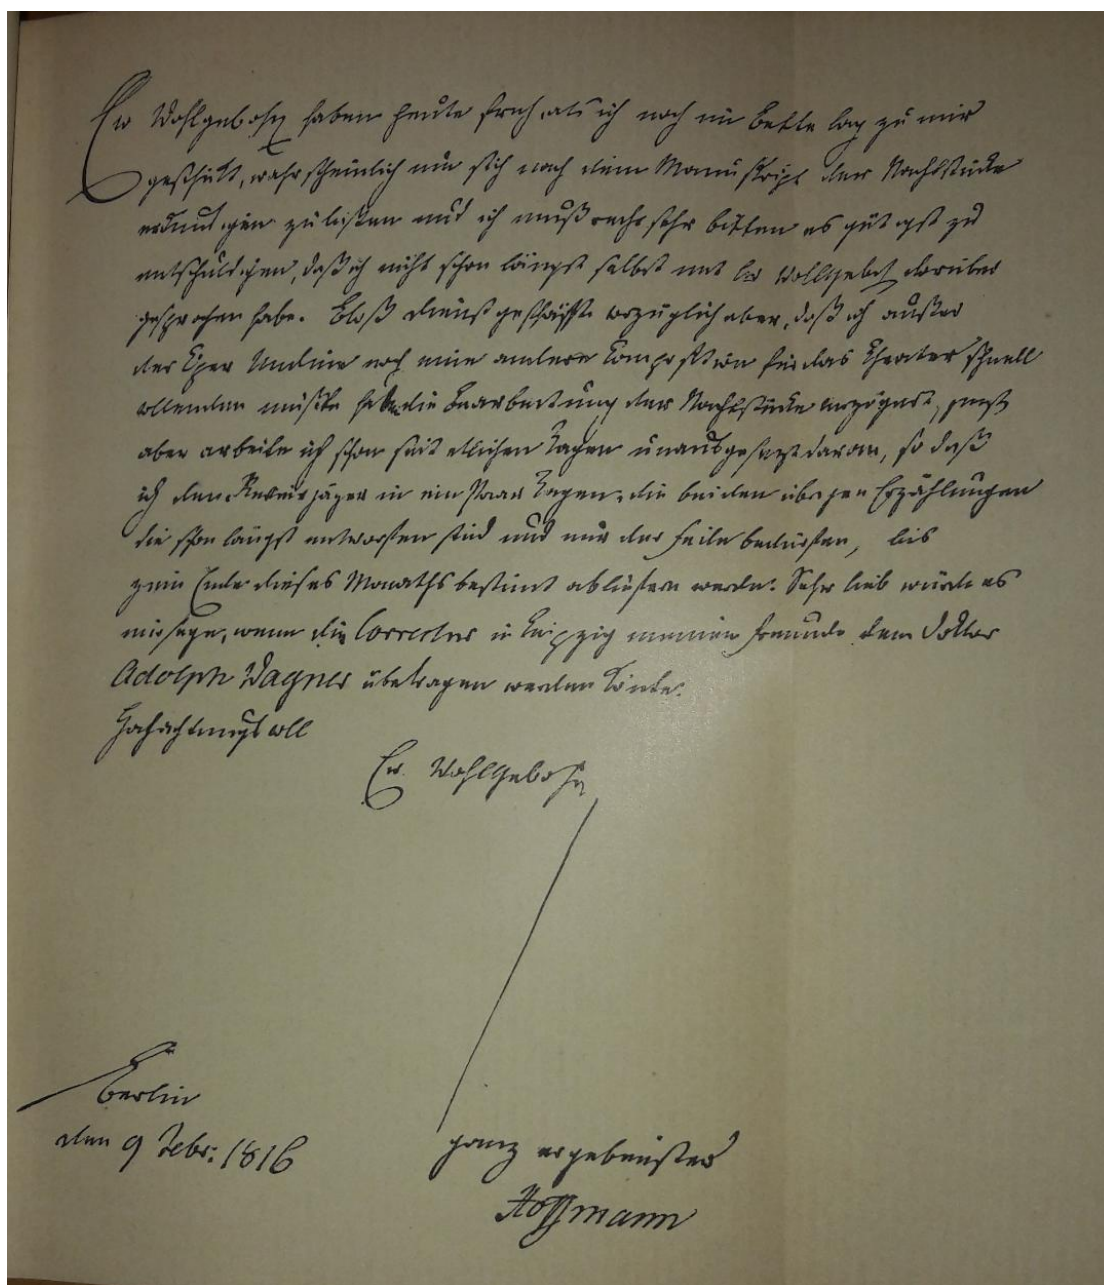 Ew Wohlgebohrn haben heute früh, als ich noch im Bette lag zu mir
geschickt, wahrscheinlich um sich nach dem Manuskript der Nachtstücke
erkundigen zu lassen und ich muß recht sehr bitten es gütigst zu
entschuldigen, daß ich nicht schon längst selbst mit Ew Wohlgeb darüber
gesprochen habe. Bloß Dienstgeschäfte vorzüglich aber, daß ich außer
der Oper Undine noch eine andere Composition für das Theater schnell
vollenden mußte habe die Bearbeitung der Nachtstücke verzögert, jetzt
aber arbeite ich schon seit etlichen Tagen unausgesetzt daran, so daß
ich den Revierjäger in ein Paar Tagen, die beiden übrigen Erzählungen
die schon längst entworfen sind und nur der Feile bedürfen, bis
zum Ende dieses Monaths bestimt abliefern werde. Sehr lieb würde es
mir seyn, wenn die Correctur in Leipzig meinem Freunde dem Doktor
Adolph Wagner übertragen werden könte.
Hochachtungsvoll
Ew. Wohlgebohrn
Berlin
den 9 Febr: 1816
ganz ergebenster
Hoffmann